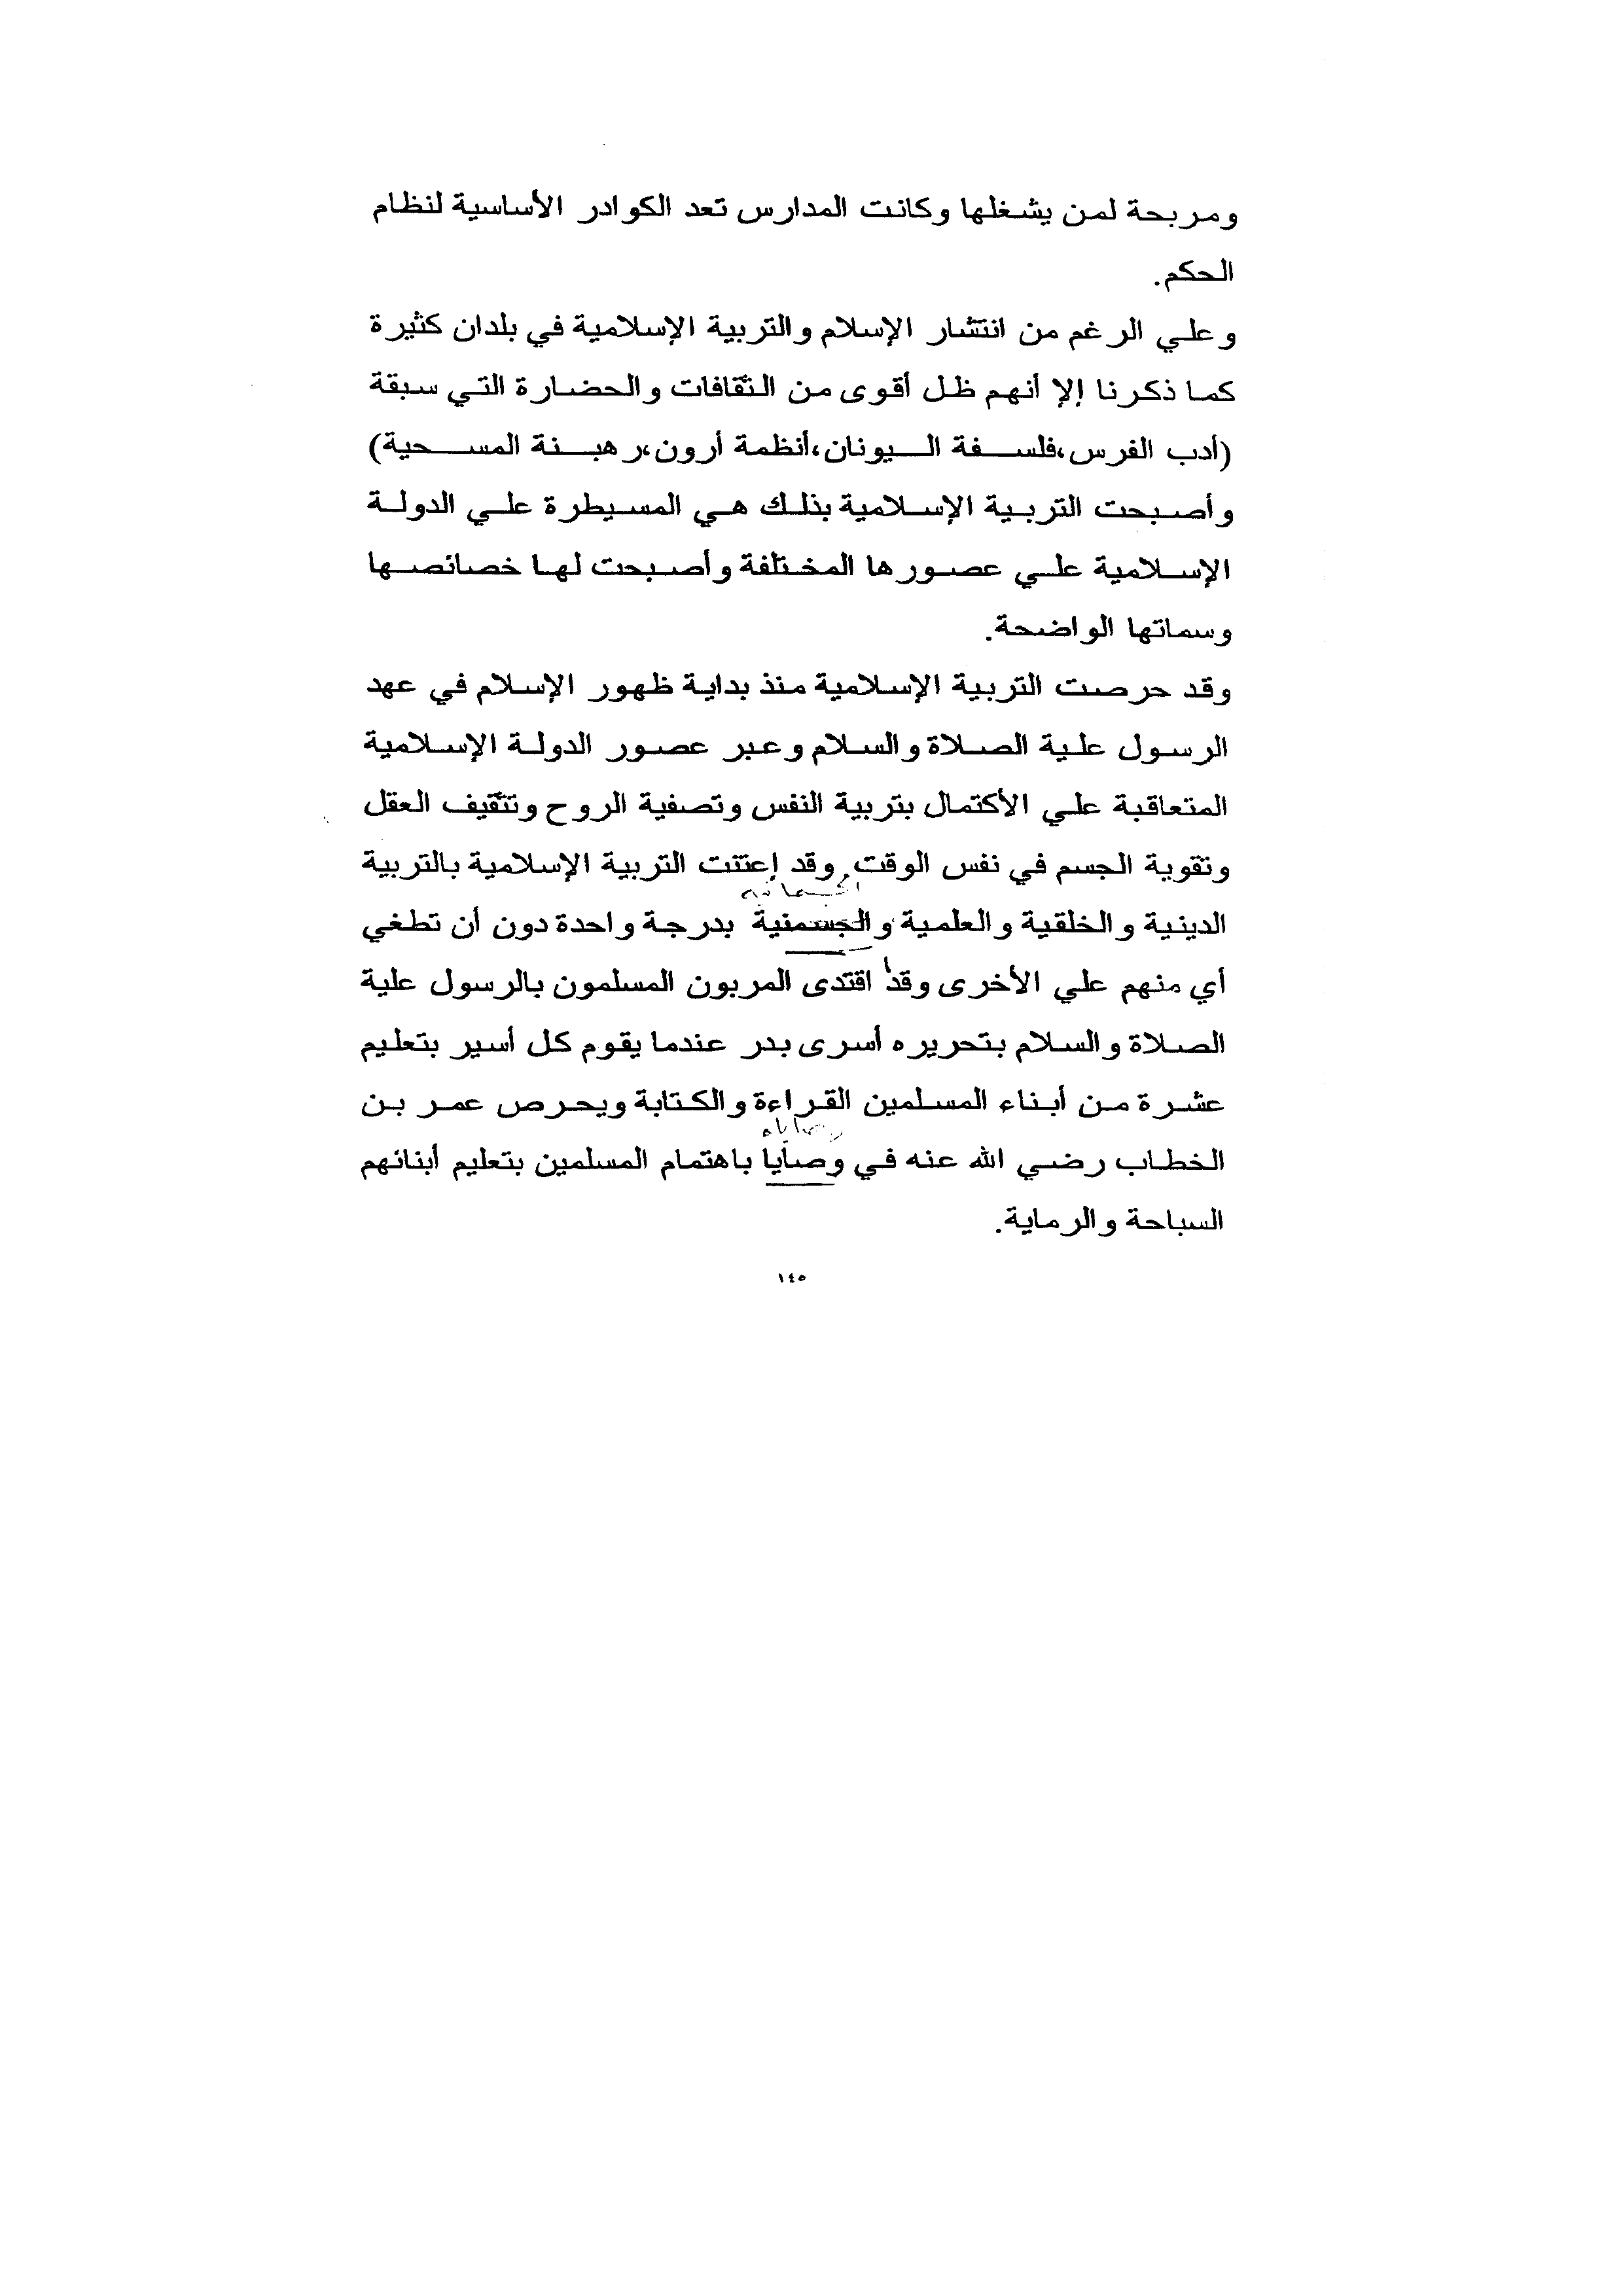 ومربحة لمن يشغلها وكانت المدارس تعد الكوادر الأساسية لنظام
الحكم.
وعلي الرغم من انتشار الإسلام والتربية الإسلامية في بلدان كثيرة
كما ذكرنا إلا أنهم ظل أقوى من الثقافات والحضارة التي سبقة
(أدب الفرس،فلسفة اليونان،أنظمة أرون،رهبنة المسحية)
وأصبحت التربية الإسلامية بذلك هي المسيطرة علي الدولة
الإسلامية علي عصورها المختلفة وأصبحت لها خصائصها
وسماتها الواضحة.
وقد حرصت التربية الإسلامية منذ بداية ظهور الإسلام في عهد
الرسول علية الصلاة والسلام وعبر عصور الدولة الإسلامية
المتعاقبة علي الأكتمال بتربية النفس وتصفية الروح وتثقيف العقل
وتقوية الجسم في نفس الوقت, وقد إعتنت التربية الإسلامية بالتربية
الدينية والخلقية والعلمية والجسمنية بدرجة واحدة دون أن تطغي
أي منهم علي الأخرى وقد اقتدى المربون المسلمون بالرسول علية
الصلاة والسلام بتحريره أسرى بدر عندما يقوم كل أسير بتعليم
عشرة من أبناء المسلمين القراءة والكتابة ويحرص عمر بن
وصاياه
الخطاب رضي الله عنه في وصايا باهتمام المسلمين بتعليم أبنائهم
السباحة والرماية.
١٤٥